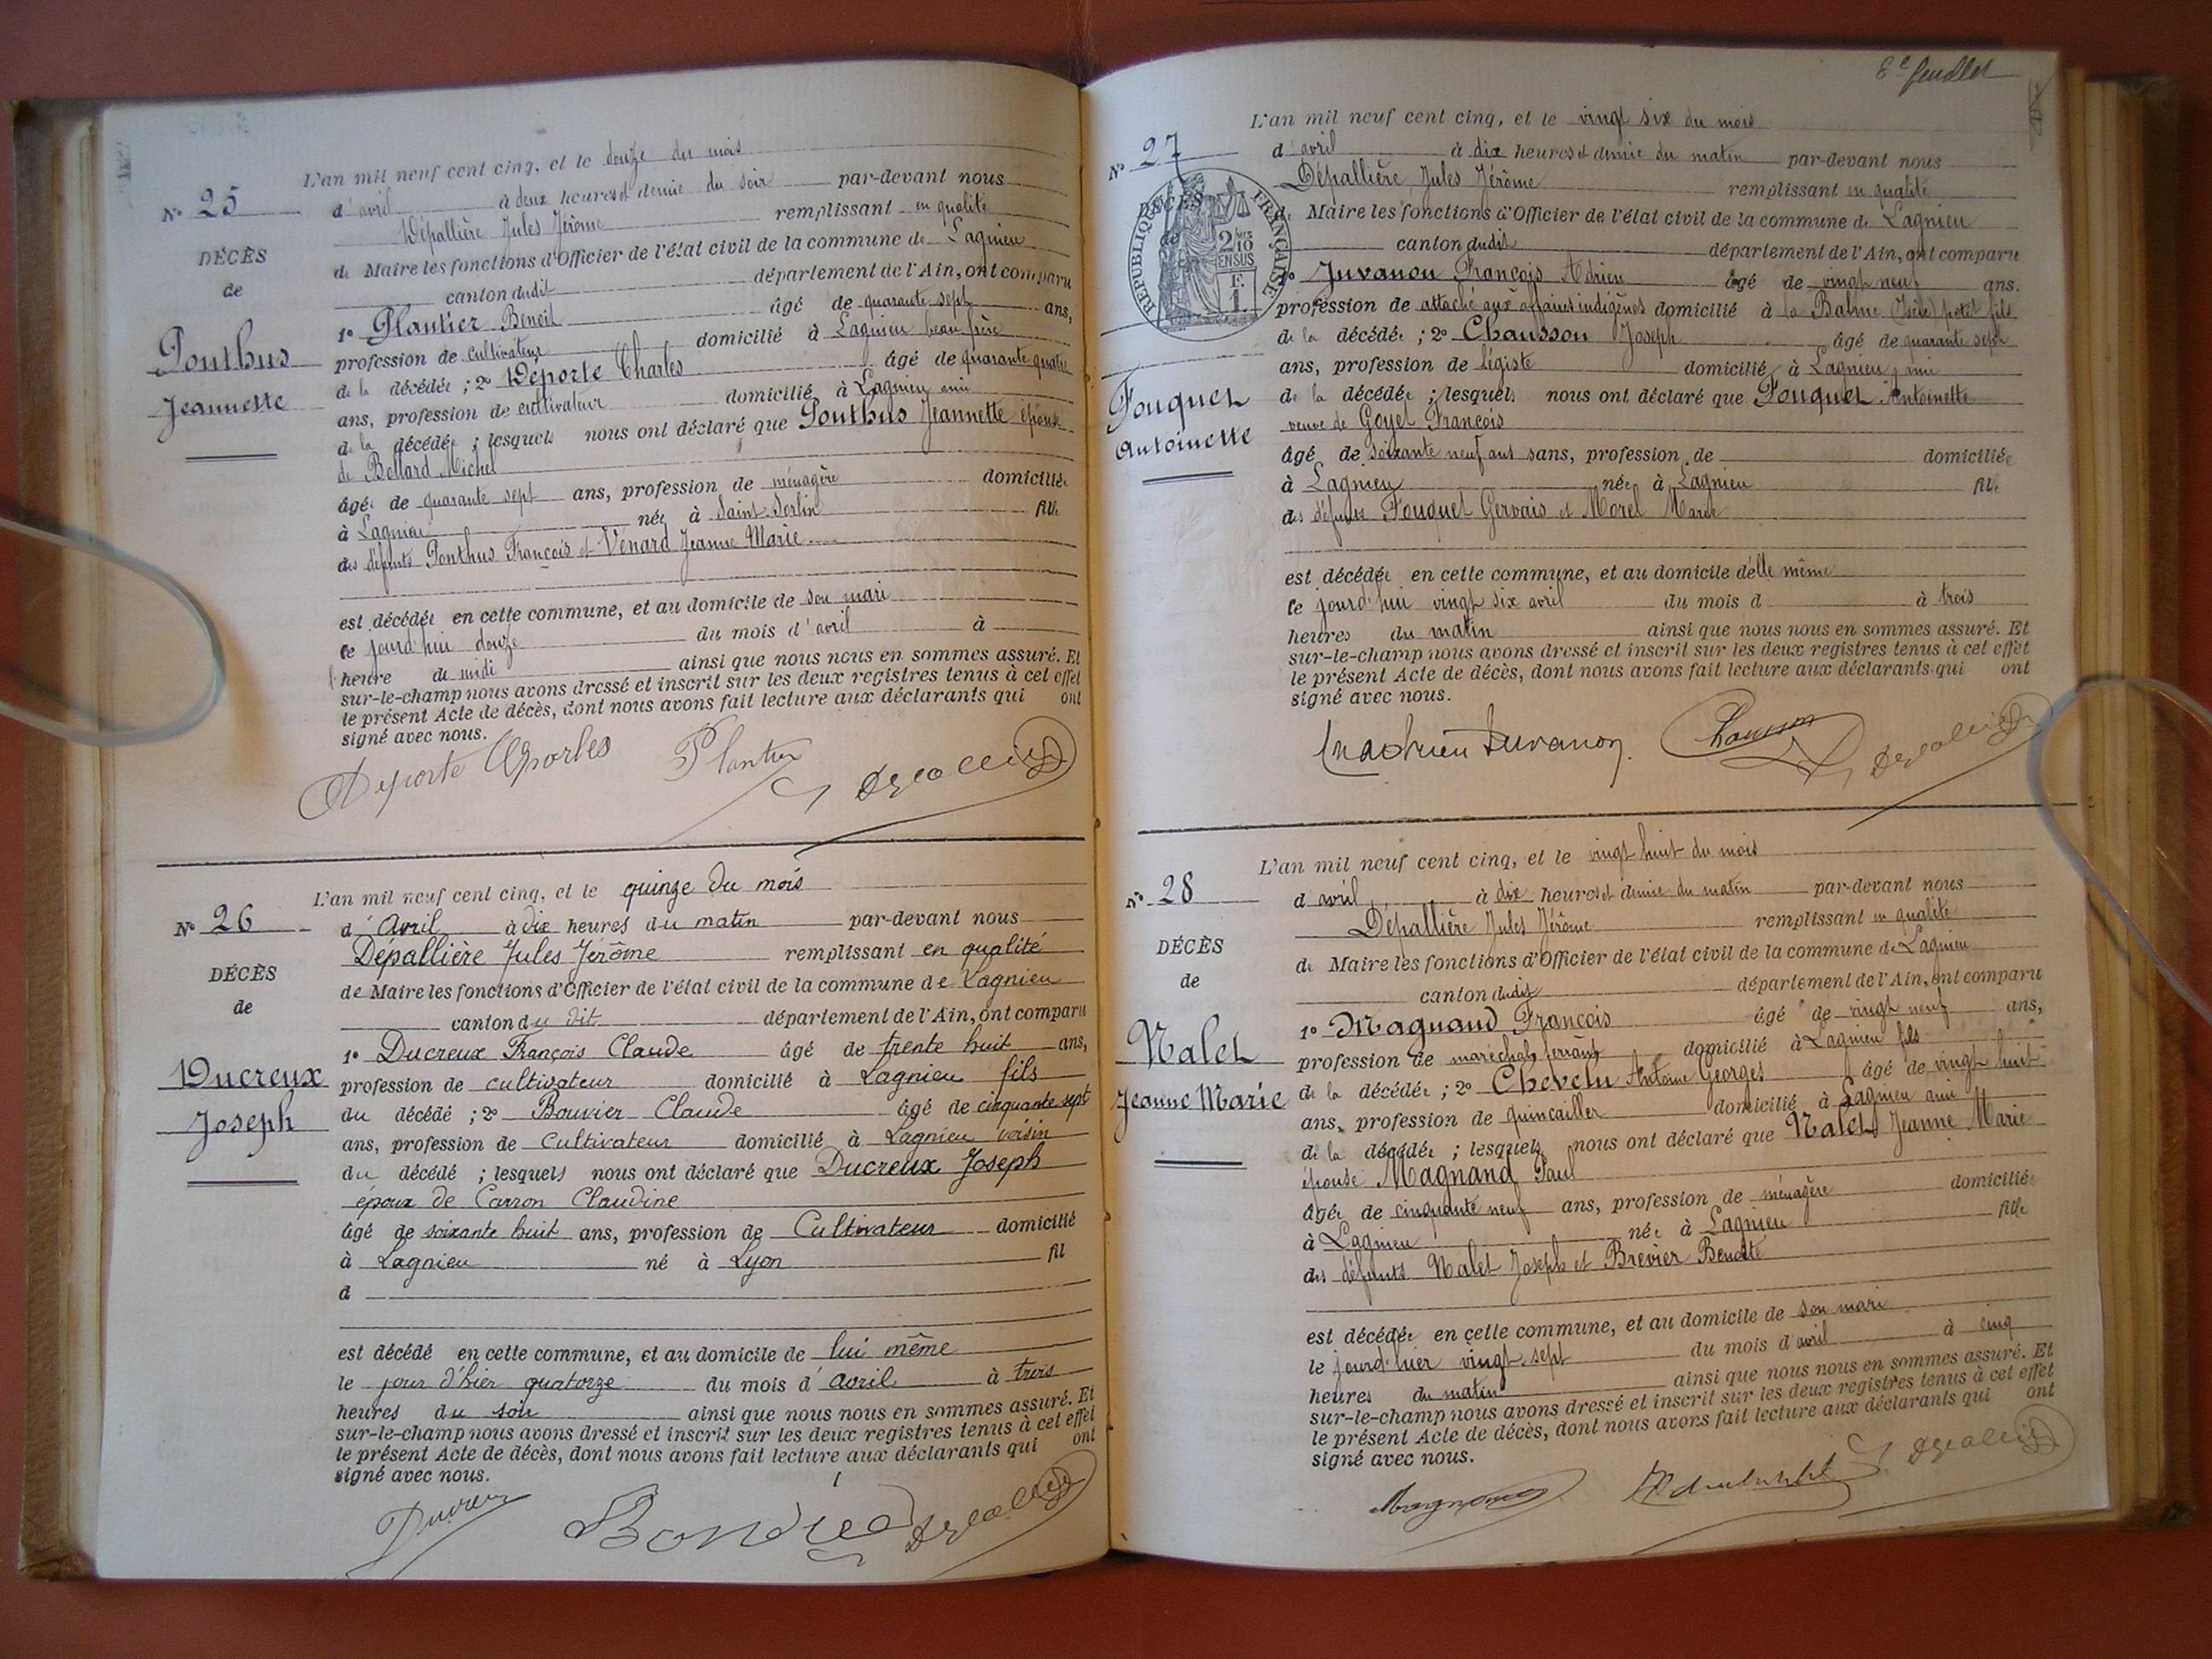 L'an mil neuf cent cinq, et le douze du mois
N° 25
d'avril à deux heures et demie du soir par-devant nous
Dépallière Jules Jérôme remplissant en qualité
DÉCÈS
de Maire les fonctions d'Officier de l'état civil de la commune de Lagnieu
de
canton dudit département de l'Ain, ont comparu
1° Plantier Benoit âgé de quarante sept ans,
Ponthus
profession de cultivateur domicilié à Lagnieu beau frère
Jeannette
de la décédée ; 2° Deporte Charles âgé de quarante quatre
ans, profession de cultivateur domicilié à Lagnieu ami
de la décédée ; lesquels nous ont déclaré que Ponthus Jeannette épouse
de Bellard Michel
âgée de quarante sept ans, profession de ménagère domiciliée
à Lagnieu née à Saint Sorlin fille
des défunts Ponthus François et Venard Jeanne Marie
est décédée en cette commune, et au domicile de son mari
ce jourd'hui douze du mois d'avril à
l'heure de midi ainsi que nous nous en sommes assuré. Et
sur-le-champ nous avons dressé et inscrit sur les deux registres tenus à cet effet
le présent Acte de décès, dont nous avons fait lecture aux déclarants qui ont
signé avec nous.
Deporte Charles Plantier
L'an mil neuf cent cinq, et le quinze du mois
N° 26
d'Avril à dix heures du matin par-devant nous
Dépallière Jules Jérôme remplissant en qualité
DÉCÈS
de Maire les fonctions d'Officier de l'état civil de la commune de Lagnieu
de
canton du dit département de l'Ain, ont comparu
1° Ducreux François Claude âgé de trente huit ans,
Ducreux
profession de cultivateur domicilié à Lagnieu fils
Joseph
du décédé ; 2° Bouvier Claude âgé de cinquante sept
ans, profession de Cultivateur domicilié à Lagnieu voisin
du décédé ; lesquels nous ont déclaré que Ducreux Joseph
époux de Carron Claudine
âgé de soixante huit ans, profession de Cultivateur domicilié
à Lagnieu né à Lyon fil
d
est décédé en cette commune, et au domicile de lui même
le jour d'hier quatorze du mois d'avril à trois
heures du soir ainsi que nous nous en sommes assuré. Et
sur-le-champ nous avons dressé et inscrit sur les deux registres tenus à cet effet
le présent Acte de décès, dont nous avons fait lecture aux déclarants qui ont
signé avec nous.
8e feuillet
L'an mil neuf cent cinq, et le vingt six du mois
N° 27
d'avril à dix heures et demie du matin par-devant nous
Dépallière Jules Jérôme remplissant en qualité
DÉCÈS
de
RÉPUBLIQUE FRANÇAISE
2/10 EN SUS
F. 1.
de Maire les fonctions d'Officier de l'état civil de la commune de Lagnieu
canton dudit département de l'Ain, ont comparu
1° Juvanon François Adrien âgé de vingt neuf ans.
profession de attaché aux affaires indigènes domicilié à la Balme (Isère) petit fils
de la décédée ; 2° Chausson Joseph âgé de quarante sept
ans, profession de légiste domicilié à Lagnieu ami
Fouquet
Antoinette
de la décédée ; lesquels nous ont déclaré que Fouquet Antoinette
veuve de Goyet François
âgée de soixante neuf ans sans, profession de domiciliée
à Lagnieu née à Lagnieu fille
des défunts Fouquet Gervais et Morel Marie
est décédée en cette commune, et au domicile d'elle même
ce jourd'hui vingt six avril du mois d à trois
heures du matin ainsi que nous nous en sommes assuré. Et
sur-le-champ nous avons dressé et inscrit sur les deux registres tenus à cet effet
le présent Acte de décès, dont nous avons fait lecture aux déclarants qui ont
signé avec nous.
Juvanon Chausson
L'an mil neuf cent cinq, et le vingt huit du mois
N° 28
d'avril à dix heures et demie du matin par-devant nous
Dépallière Jules Jérôme remplissant en qualité
DÉCÈS
de Maire les fonctions d'Officier de l'état civil de la commune de Lagnieu
de
canton dudit département de l'Ain, ont comparu
1° Magnand François âgé de vingt neuf ans,
Nalet
profession de maréchal ferrant domicilié à Lagnieu fils
Jeanne Marie
de la décédée ; 2° Chevelu Antoine Georges âgé de vingt huit
ans, profession de quincailler domicilié à Lagnieu ami
de la décédée ; lesquels nous ont déclaré que Nalet Jeanne Marie
épouse Magnand Paul
âgée de cinquante neuf ans, profession de ménagère domiciliée
à Lagnieu née à Lagnieu fille
des défunts Nalet Joseph et Brevier Benoite
est décédée en cette commune, et au domicile de son mari
le jourd'hier vingt sept du mois d'avril à cinq
heures du matin ainsi que nous nous en sommes assuré. Et
sur-le-champ nous avons dressé et inscrit sur les deux registres tenus à cet effet
le présent Acte de décès, dont nous avons fait lecture aux déclarants qui ont
signé avec nous.